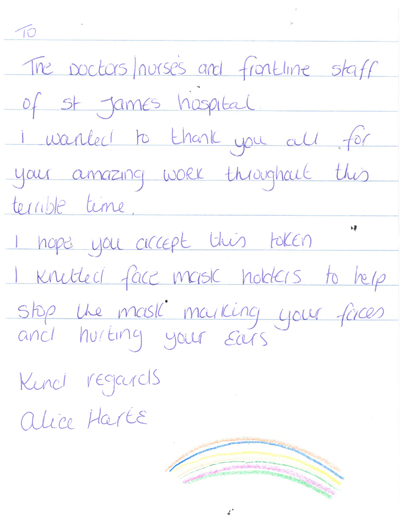 To
The Doctors/nurses and frontline staff
of St James hospital
I wanted to thank you all for
your amazing work throughout this
terrible time.
I hope you accept this token
I knitted face mask holders to help
stop the mask marking your faces
and hurting your ears
Kind regards
Alice Harte